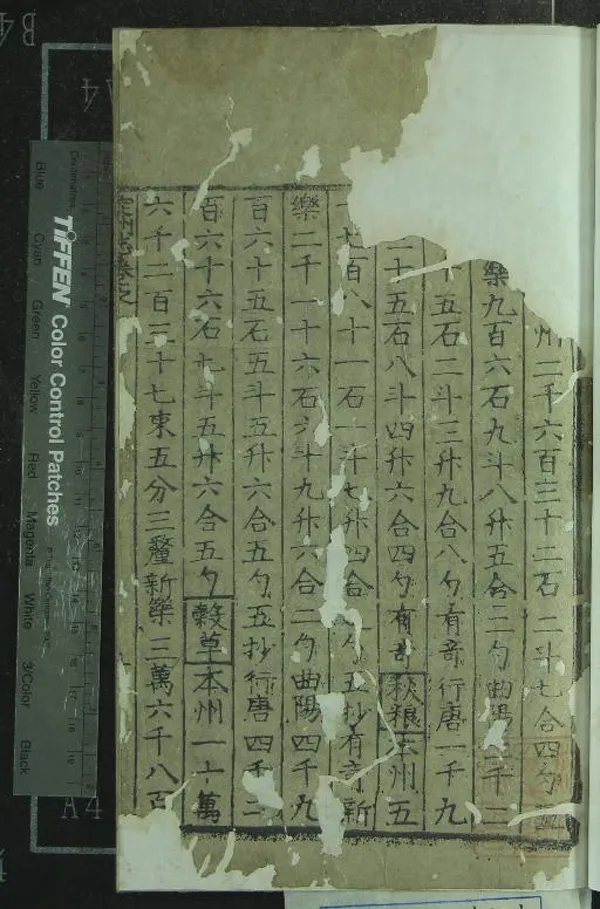 州二千六百三十二石二斗七合四勺五
樂九百六石九斗八升五合二勺曲陽二千二
十五石二斗三升九合八勺有奇行唐一千九
二十五石八斗四升六合四勺有奇秋粮本州五
百八十一石一斗七升四合一勺五抄有奇新
樂二千一十六石六斗九升六合二勺曲陽四千九
百六十五石五斗五升六合五勺五抄行唐四千二
百六十六石九斗五升六合五勺穀草本州一十萬
六千二百三十七束五分三釐新樂三萬六千八百
定州志卷之
TIFFEN Color Control Patches
Blue Cyan Green Yellow Red Magenta White 3/Color Black
Centimetres
A4
B4
A4